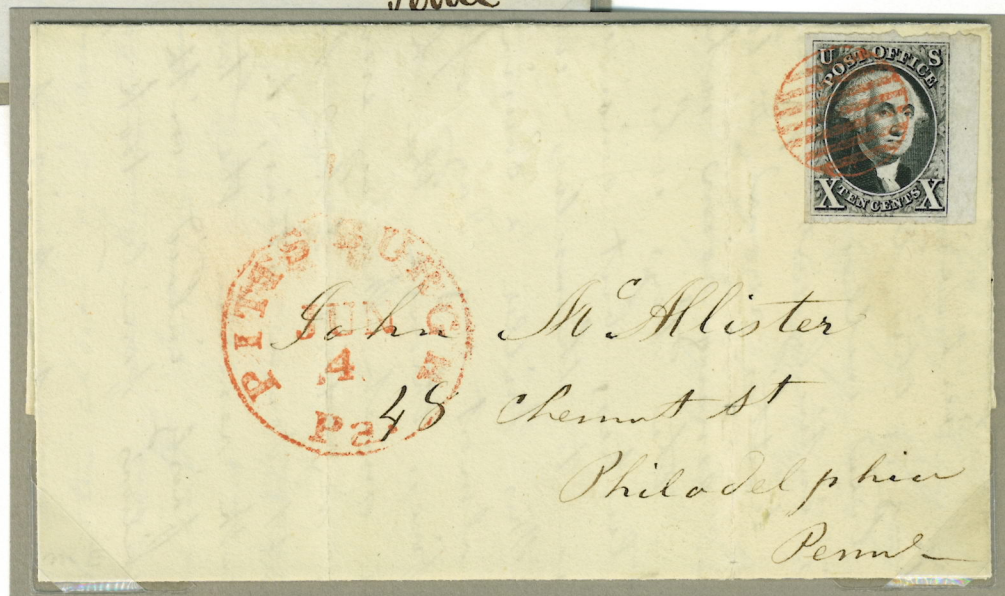 U S
POST OFFICE
X TEN CENTS X
PITTSBURGH
JUN
4
Pa.
John McAllister
48 Chesnut St
Philadelphia
Penna